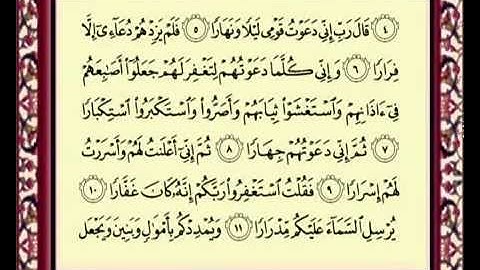 ٤ قَالَ رَبِّ إِنِّي دَعَوْتُ قَوْمِي لَيْلًا وَنَهَارًا ٥ فَلَمْ يَزِدْهُمْ دُعَآءِيٓ إِلَّا
فِرَارًا ٦ وَإِنِّي كُلَّمَا دَعَوْتُهُمْ لِتَغْفِرَ لَهُمْ جَعَلُوٓا۟ أَصَٰبِعَهُمْ
فِيٓ ءَاذَانِهِمْ وَٱسْتَغْشَوْا۟ ثِيَابَهُمْ وَأَصَرُّوا۟ وَٱسْتَكْبَرُوا۟ ٱسْتِكْبَارًا
٧ ثُمَّ إِنِّي دَعَوْتُهُمْ جِهَارًا ٨ ثُمَّ إِنِّيٓ أَعْلَنتُ لَهُمْ وَأَسْرَرْتُ
لَهُمْ إِسْرَارًا ٩ فَقُلْتُ ٱسْتَغْفِرُوا۟ رَبَّكُمْ إِنَّهُۥ كَانَ غَفَّارًا ١٠
يُرْسِلِ ٱلسَّمَآءَ عَلَيْكُم مِّدْرَارًا ١١ وَيُمْدِدْكُم بِأَمْوَٰلٍ وَبَنِينَ وَيَجْعَل